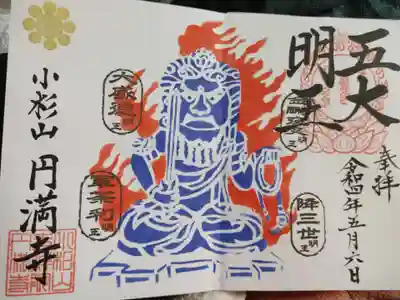 奉拝
令和四年五月六日
五大
明王
金剛夜叉明王
降三世明王
大威徳明王
軍荼利明王
小杉山 円満寺